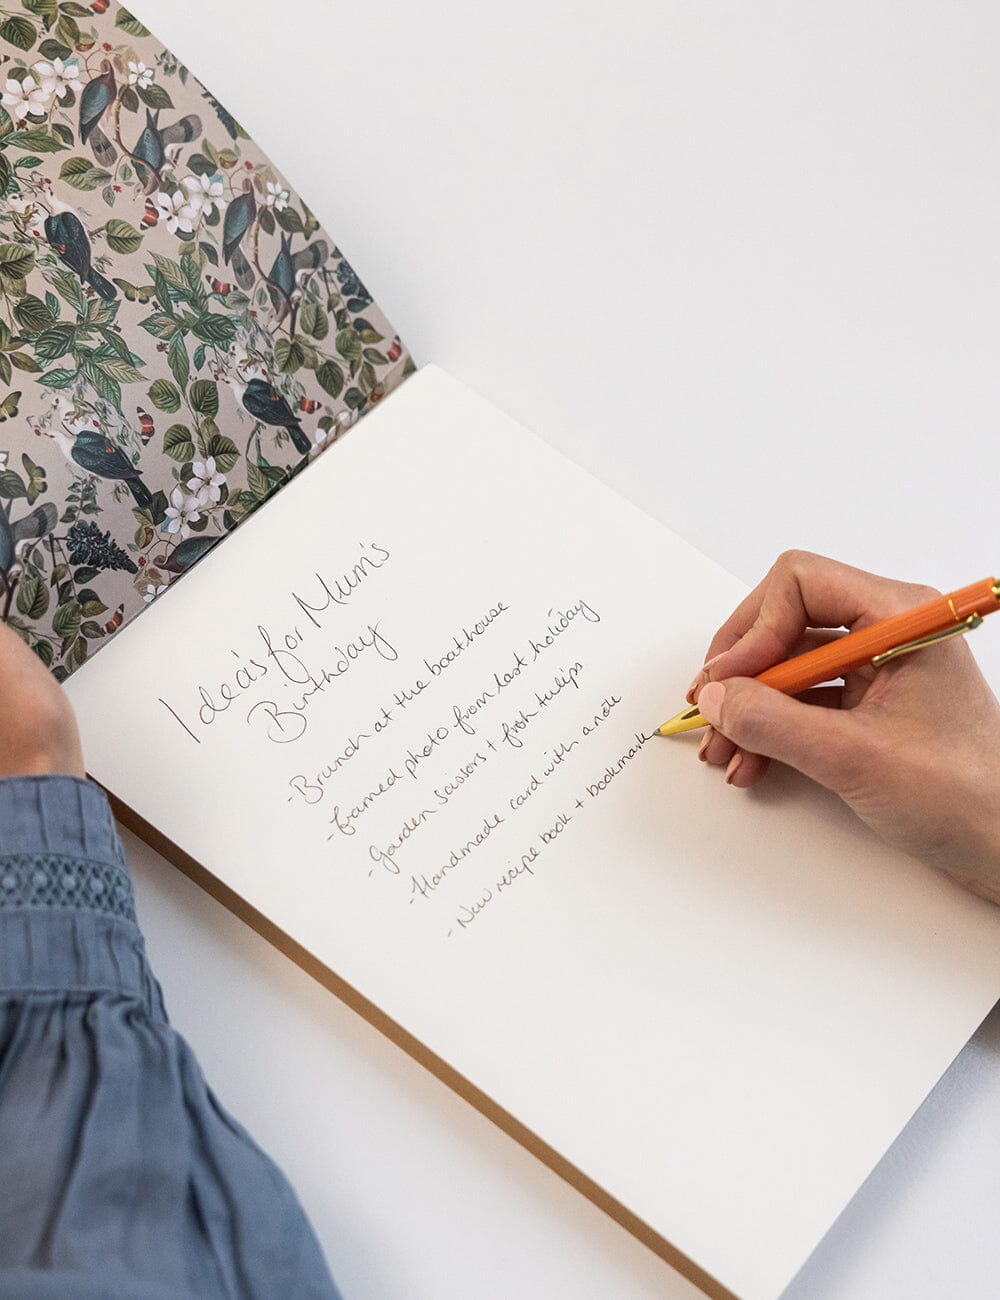 Idea's for Mum's
Birthday
- Brunch at the boathouse
- framed photo from last holiday
- Garden scissors + fresh tulips
- Handmade card with a note
- New recipe book + bookmark